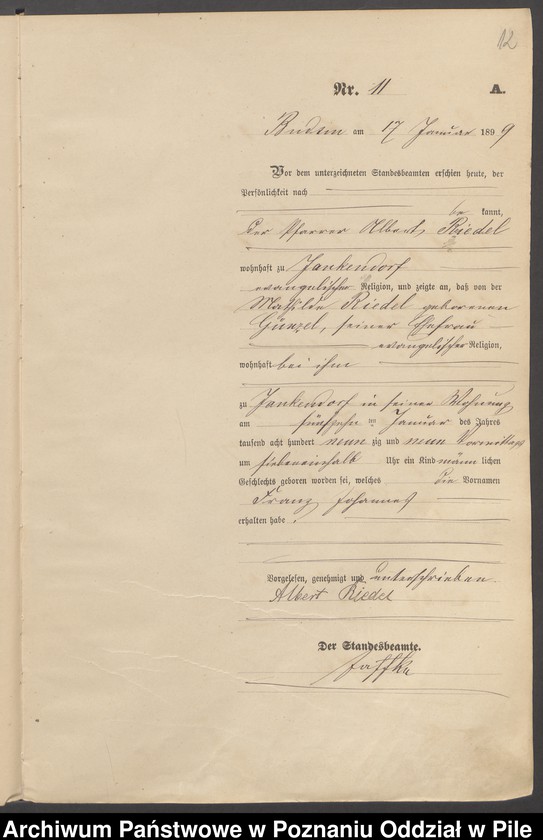 12
Nr. 11 A.
Budsin am 17 Januar 1899
Vor dem unterzeichneten Standesbeamten erschien heute, der
Persönlichkeit nach
be kannt,
der Pfarrer Albert Riedel
wohnhaft zu Jankendorf
evangelischer Religion, und zeigte an, daß von der
Mathilde Riedel geborenen
Günzel, seiner Ehefrau
evangelischer Religion,
wohnhaft bei ihm
zu Jankendorf in seiner Wohnung
am fünfzehn ten Januar des Jahres
tausend acht hundert neun zig und neun Vormittags
um siebeneinhalb Uhr ein Kind männ lichen
Geschlechts geboren worden sei, welches die Vornamen
Franz Johannes
erhalten habe.
Vorgelesen, genehmigt und unterschrieben.
Albert Riedel
Der Standesbeamte.
Archiwum Państwowe w Poznaniu Oddział w Pile